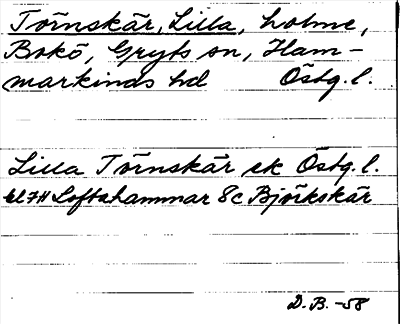 Törnskär, Lilla, holme,
Bokö, Gryts sn, Ham-
markinds hd Östg. l.
Lilla Törnskär ek Östg. l.
bl 7H Loftahammar 8c Björkskär
D. B. -58